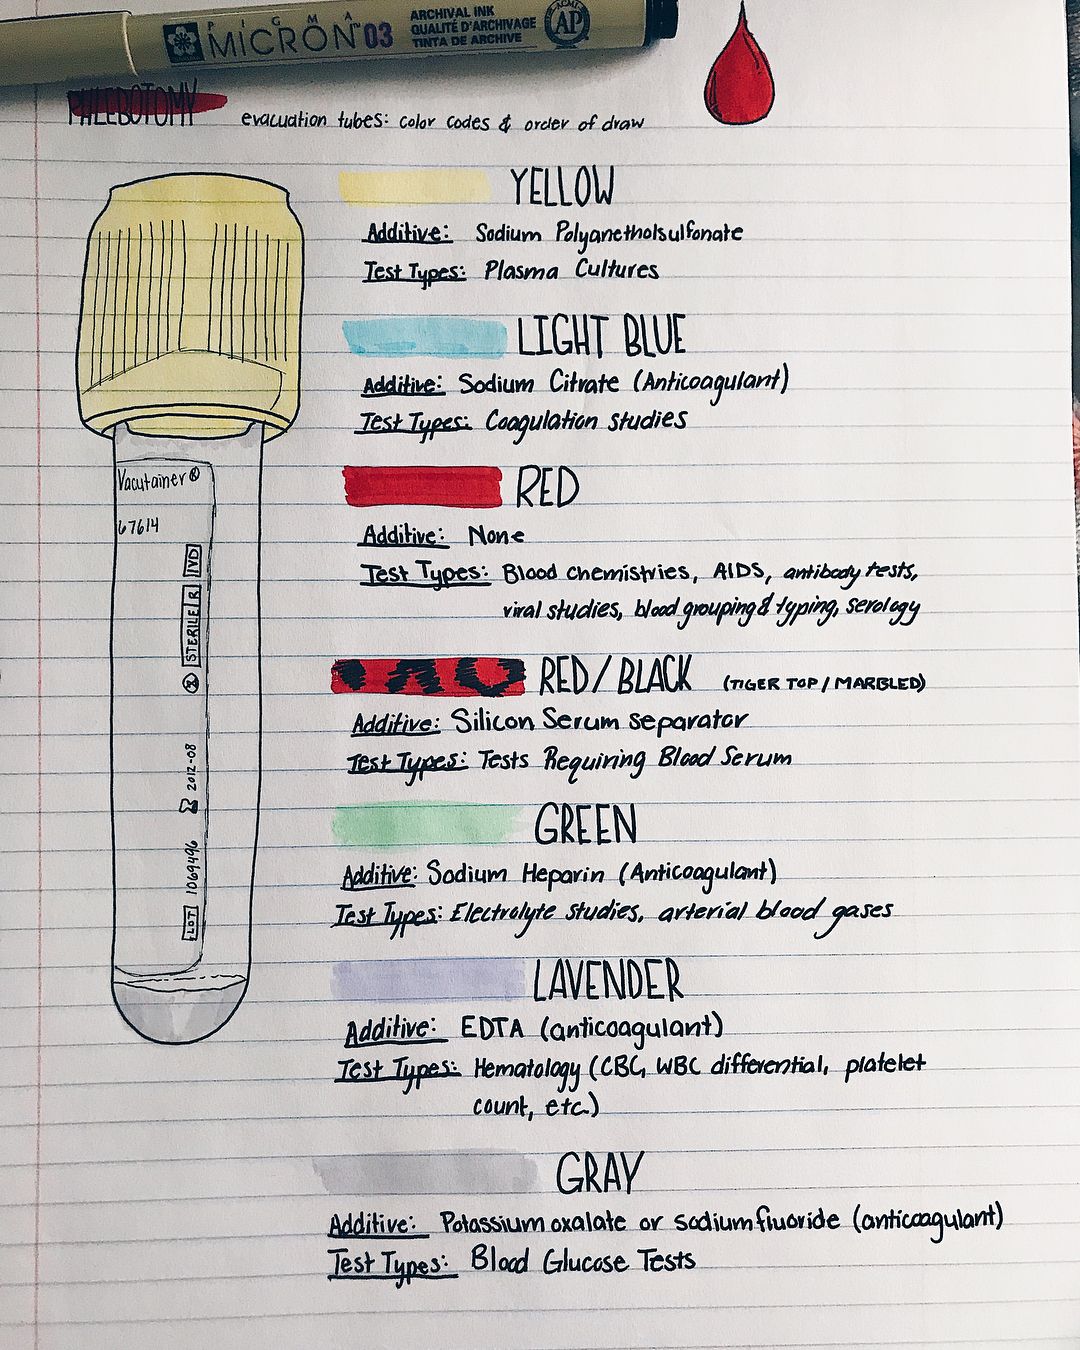 PIGMA
MICRON 03
ARCHIVAL INK
QUALITÉ D'ARCHIVAGE
TINTA DE ARCHIVE
ACMI
AP
PHLEBOTOMY evacuation tubes: color codes & order of draw
YELLOW
Additive: Sodium Polyanetholsulfonate
Test Types: Plasma Cultures
LIGHT BLUE
Additive: Sodium Citrate (Anticoagulant)
Test Types: Coagulation studies
RED
Additive: None
Test Types: Blood chemistries, AIDS, antibody tests,
viral studies, blood grouping & typing, serology
RED/BLACK (TIGER TOP / MARBLED)
Additive: Silicon Serum separator
Test Types: Tests Requiring Blood Serum
GREEN
Additive: Sodium Heparin (Anticoagulant)
Test Types: Electrolyte studies, arterial blood gases
LAVENDER
Additive: EDTA (anticoagulant)
Test Types: Hematology (CBC, WBC differential, platelet
count, etc.)
GRAY
Additive: Potassium oxalate or sodium fluoride (anticoagulant)
Test Types: Blood Glucose Tests
Vacutainer®
67614
LOT 1069496 2012-08 STERILE R IVD